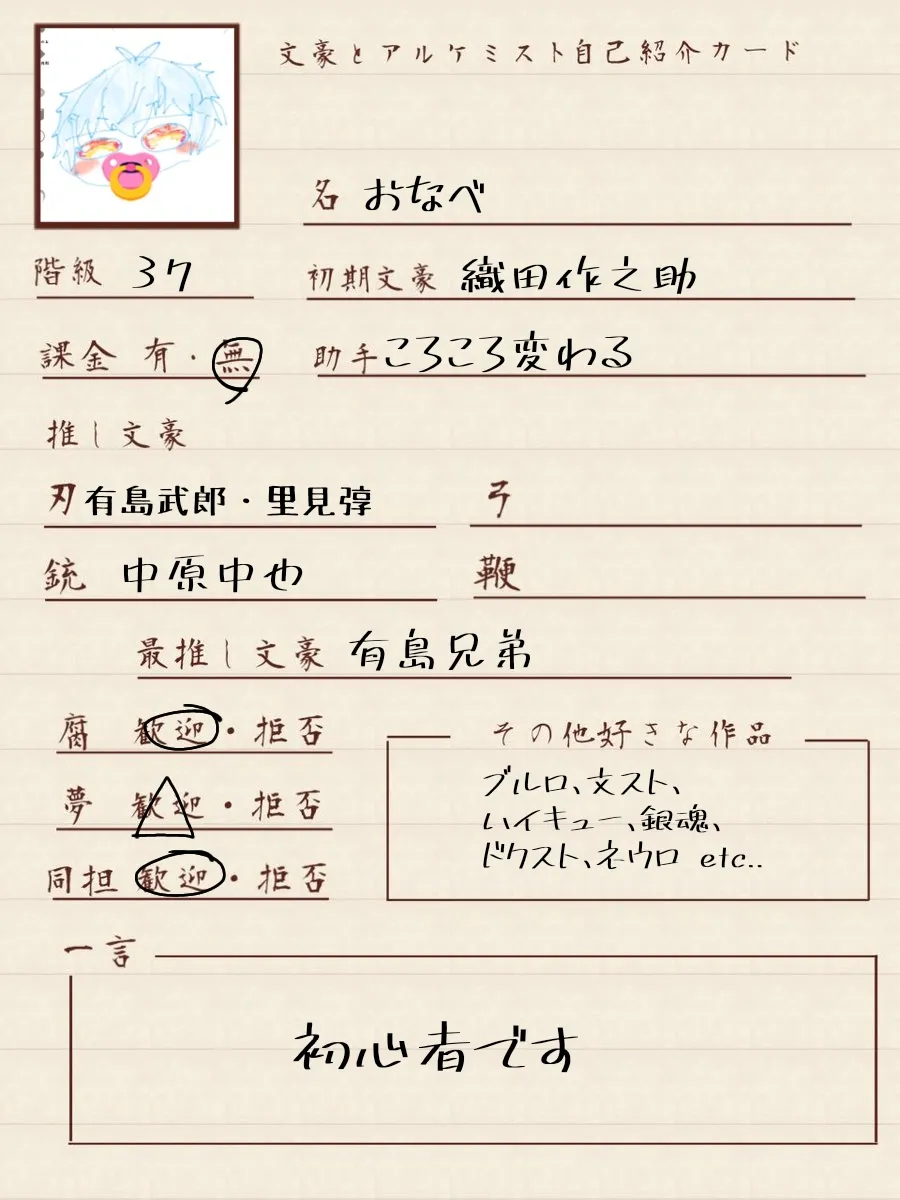 文豪とアルケミスト自己紹介カード
名 おなべ
階級 37
初期文豪 織田作之助
課金 有・無
助手 ころころ変わる
推し文豪
刃 有島武郎・里見弴
弓
銃 中原中也
鞭
最推し文豪 有島兄弟
腐 歓迎・拒否
夢 歓迎・拒否
同担 歓迎・拒否
その他好きな作品
ブルロ、文スト、
ハイキュー、銀魂、
ドクスト、ネウロ etc..
一言
初心者です